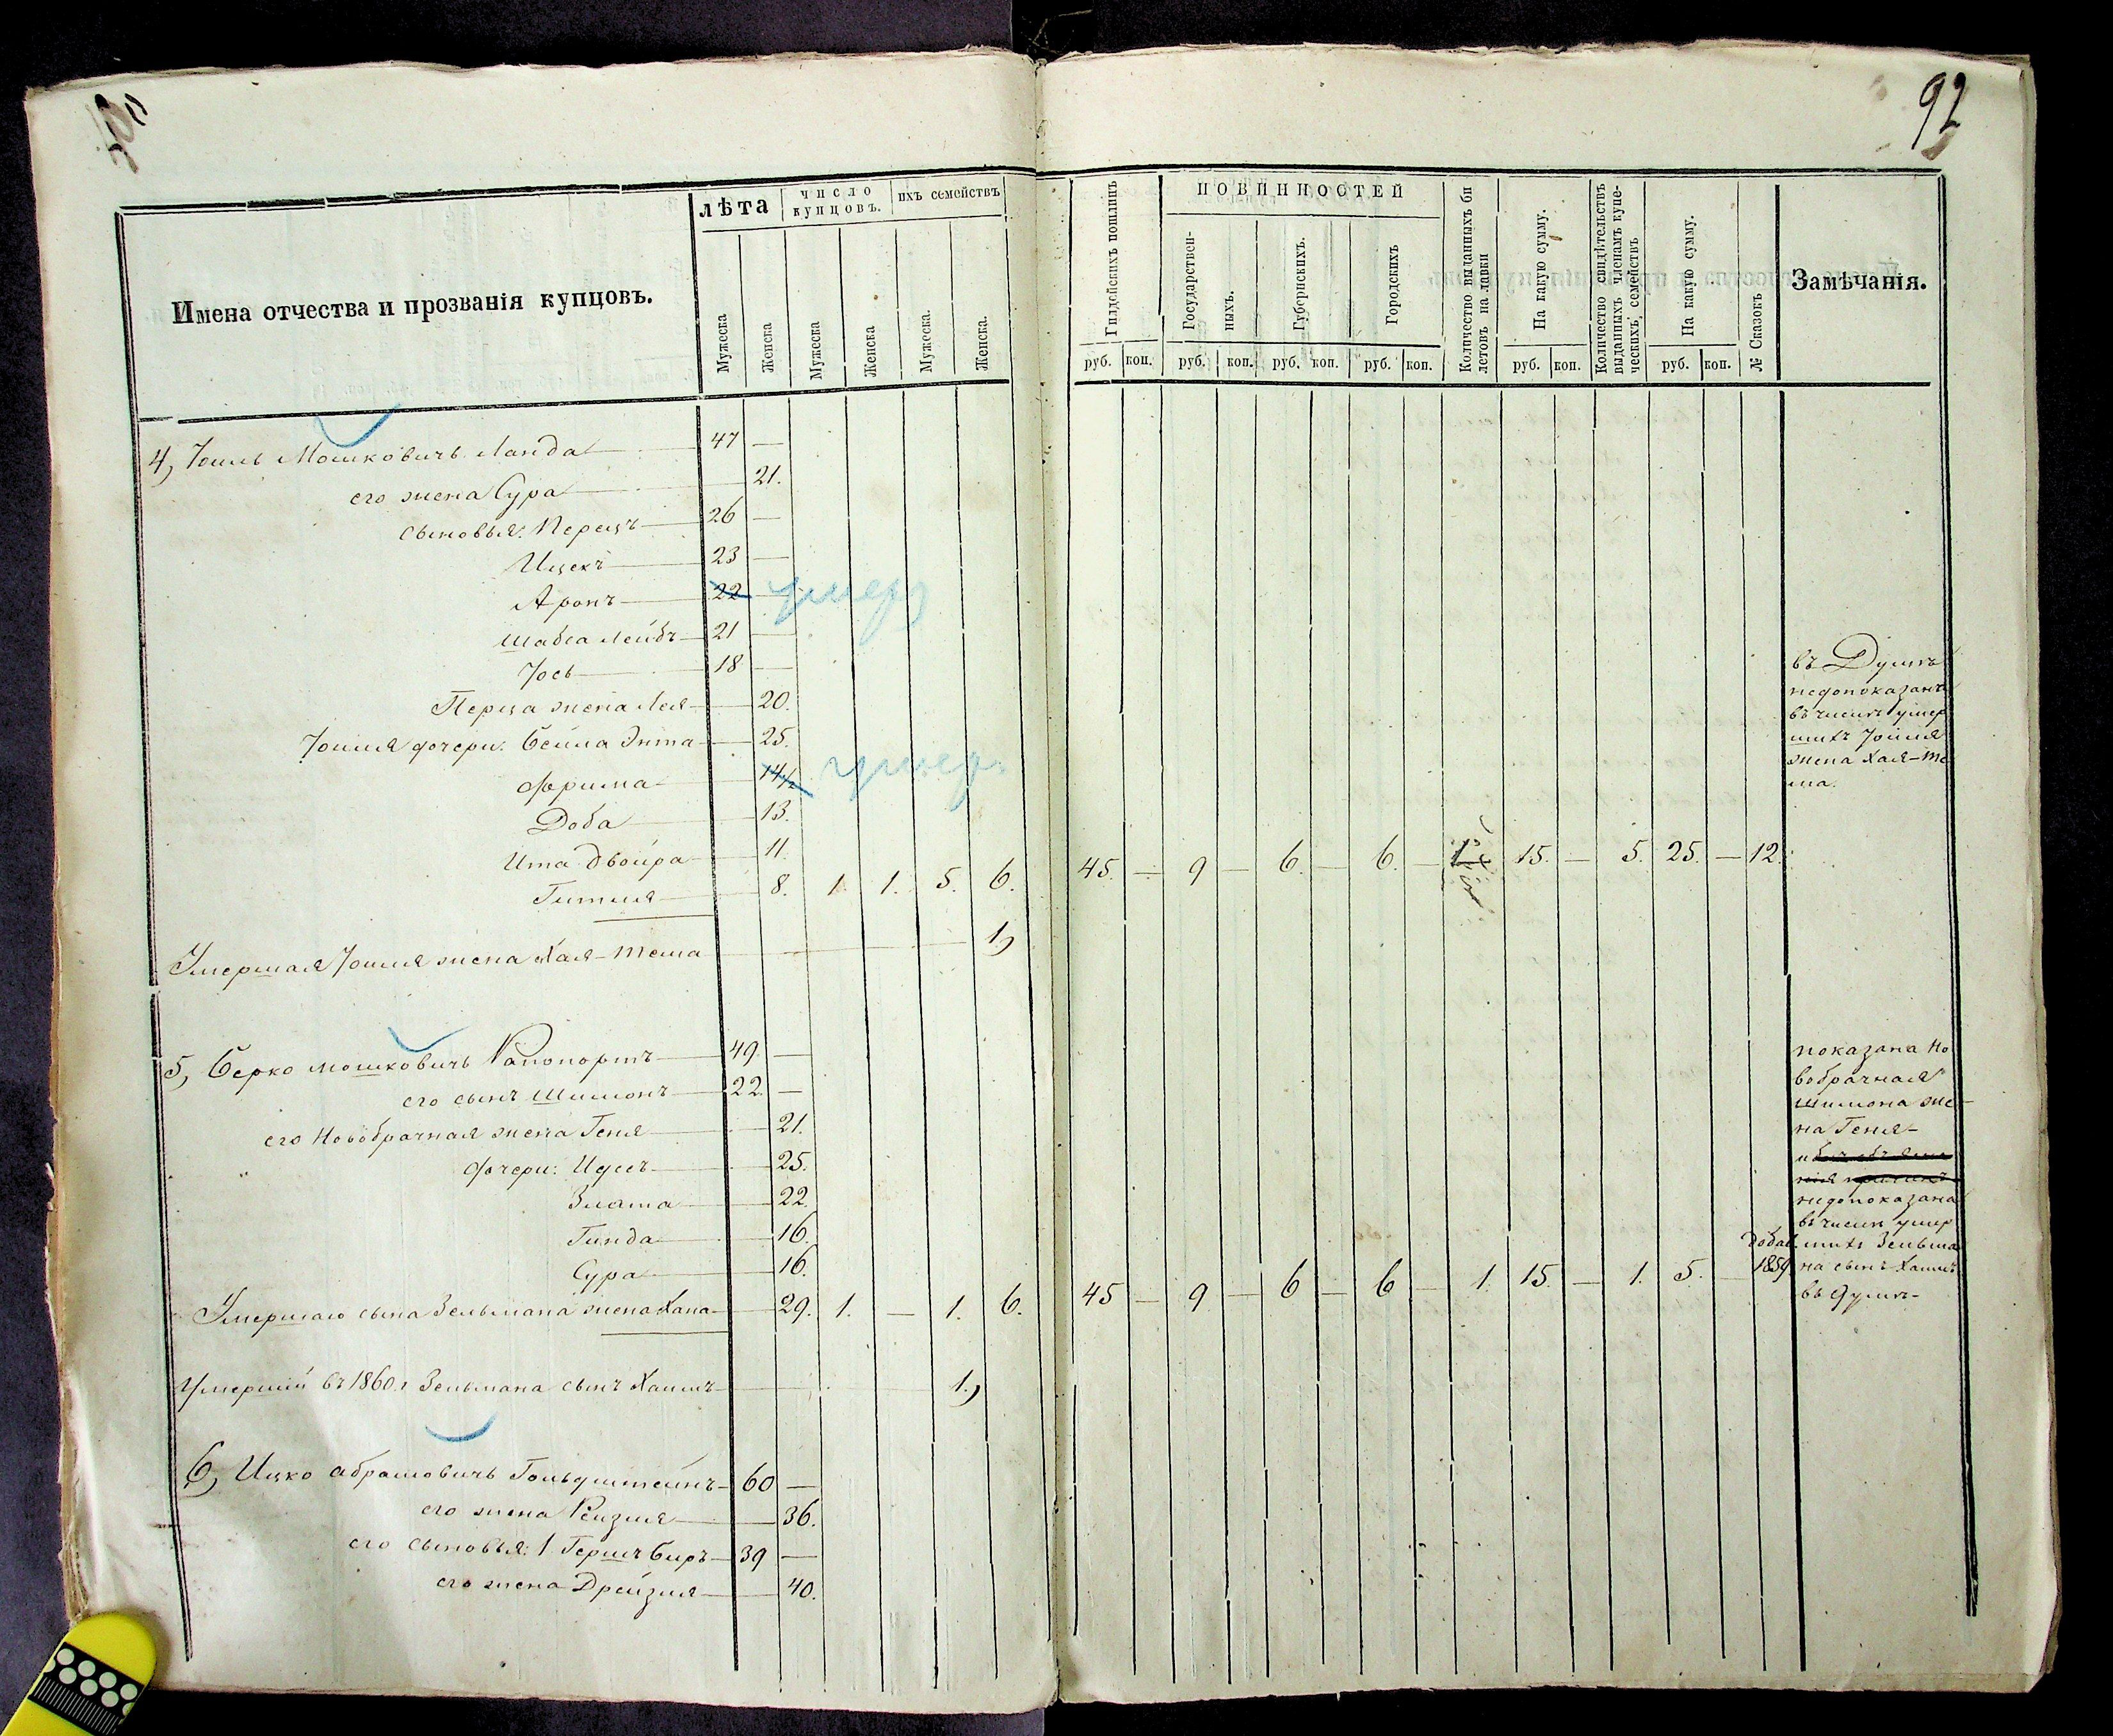 92
Имена отчества и прозванія купцовъ.
лѣта
число купцовъ.
ихъ семействъ
Мужеска
Женска
Мужеска
Женска
Мужеска.
Женска.
Гилдейскихъ пошлинъ
ПОВИННОСТЕЙ
Государственныхъ.
Губернскихъ.
Городскихъ
Количество выданныхъ билетовъ на лавки
На какую сумму.
Количество свидѣтельствъ выданныхъ членамъ купеческихъ семействъ
На какую сумму.
№ Сказокъ
Замѣчанія.
руб. коп. руб. коп. руб. коп. руб. коп. руб. коп. руб. коп.
4, Іоиль Мошковичъ Ланда 47 —
его жена Сура 21.
сыновья: Перецъ 26 —
Ицекъ 23 —
Аронъ 22 умер
Шабса Лейбъ 21 —
Іось 18 —
Перца жена Лея 20.
Іоиля дочери: Бейла Энта 25.
Фрима 14½ умер.
Доба 13.
Ита Двойра 11.
Гитля 8. 1 1. 5. 6. 45. — 9 — 6. — 6. — 1 15. — 5. 25. — 12.
Умершая Іоиля жена Хая-Тема 1,
въ Думѣ
недопоказана
въ числѣ умер
шихъ Іоиля
жена Хая-Те
ма.
5, Берко Мошковичъ Рапопортъ 49. —
его сынъ Шимонъ 22. —
его новобрачная жена Геня 21.
дочери: Идесъ 25.
Злата 22.
Гинда 16.
Сура 16.
Умершаго сына Зельмана жена Хана 29. 1. — 1. 6. 45 — 9 — 6 — 6 — 1. 15. — 1. 5. —
Добав. 1859
Умершій въ 1860. г Зельмана сынъ Хаимъ 1,
показана но
вобрачная
Шимона же-
на Геня-
недопоказана
въ числѣ умер
шихъ Зельма
на сынъ Хаимъ
въ Думѣ-
6, Ицко Абрамовичъ Гольдштейнъ 60 —
его жена Рейзля 36.
его сыновья: 1 Гершъ Беръ 39 —
его жена Дрейзля 40.